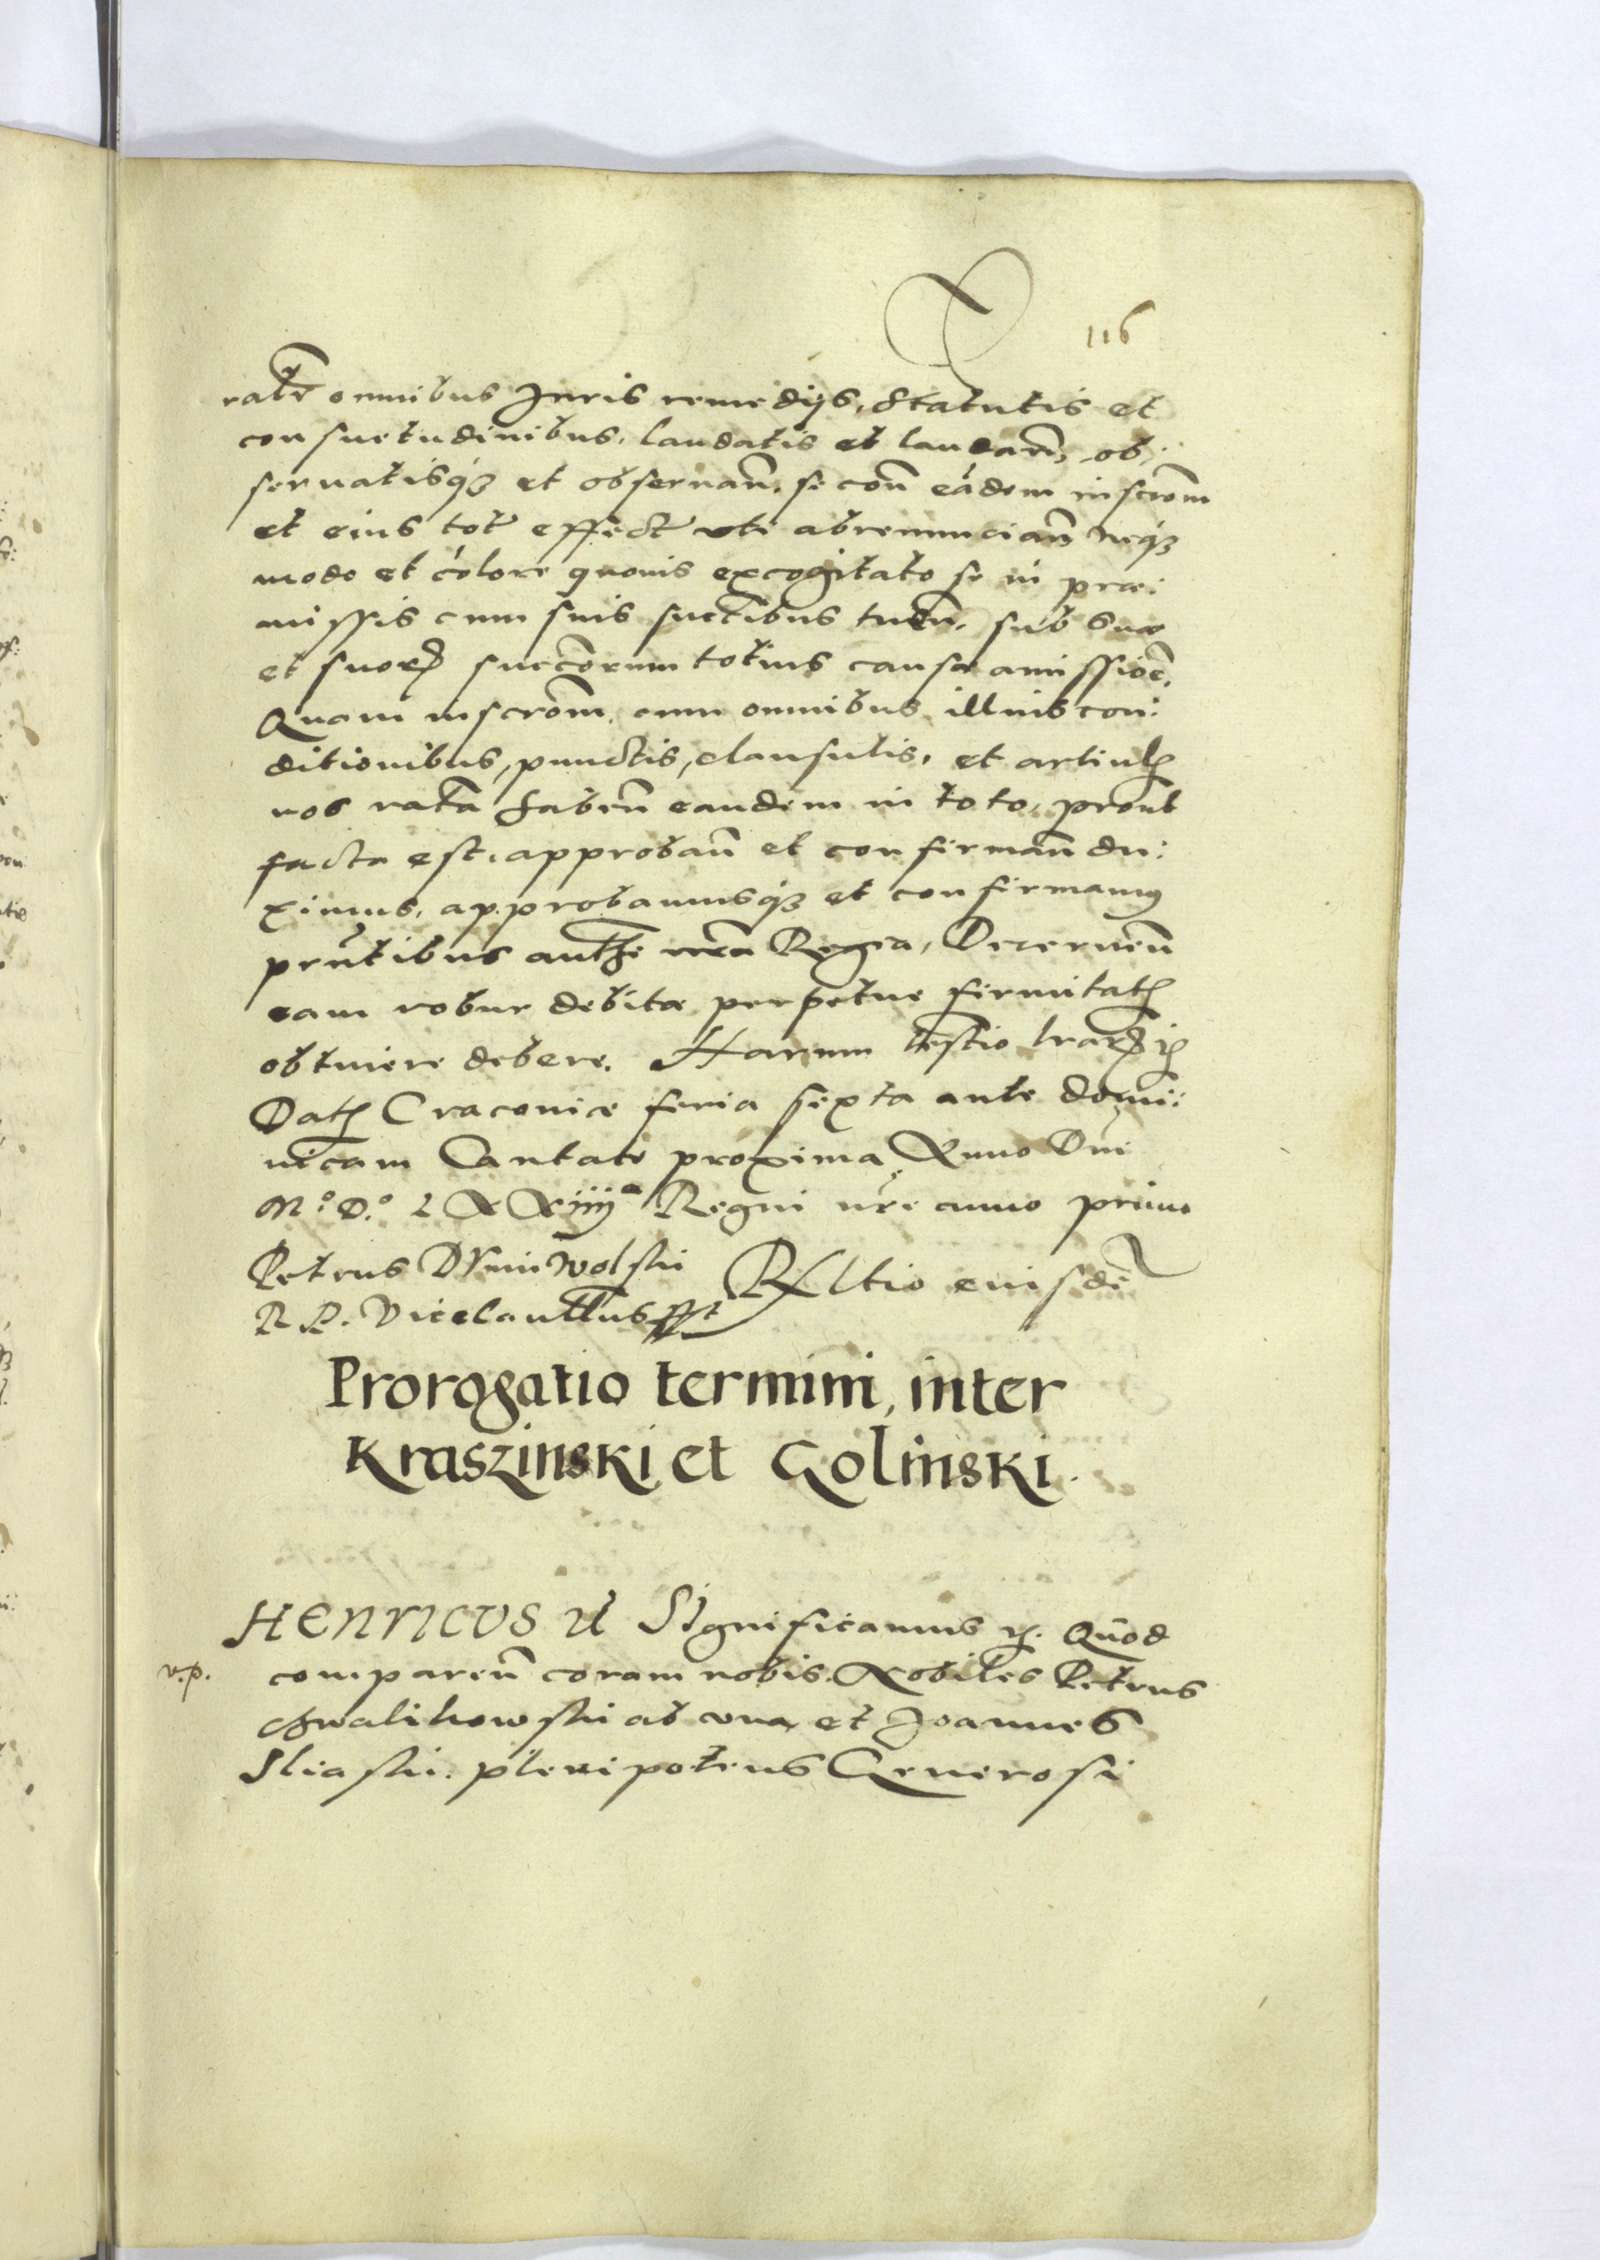 116
ratẽ omnibus Juris remedijs, statutis et
consuetudinibus, laudatis et laudañ, ob:
seruatisq́3 et obseruañ, se coñ eádem inscrõm
et eius totȓ effectȓ uti abrenunciañ neq́3
modo et cólore quouis excogitato se in præ:
missis cum suis succȓibus tueñ, sub sua
et suorꝝ succõrum totius causæ amissioē.
Quam inscrõm, cum omnibus illius con:
ditionibus, punctis, clausulis, et articulꝭ
nos ratã habeñ eandem in toto, prout
facta est, approbañ et confirmañ du:
ximus, approbamusq́3 et confirmamꝰ
prñtibus authẽ nrã Regia, Decerneñ
eam robur debitæ perpetue firmitatꝭ
obtinere debere. Harum testĩo lrarꝝ ꝛc
Datꝭ Cracouiæ feria sexta ante domi:
nicam Cantate proxima Anno Dñi
M.º D.º LXXiiijᵗᵒ Regni nrĩ anno primo
Petrus Duninwolski
R. P. Vicecancellarius sst
Rltio eiusdẽ
Prorogatio termini, inter
Kraszinski et Golinski.
HENRICVS ꝛc Significamus ꝛc. Quod
v.p.
compareñ coram nobis. Nobiles Petrus
Gwalikowski ab vna, et Joannes
Iliaski. plenipotens Generosi